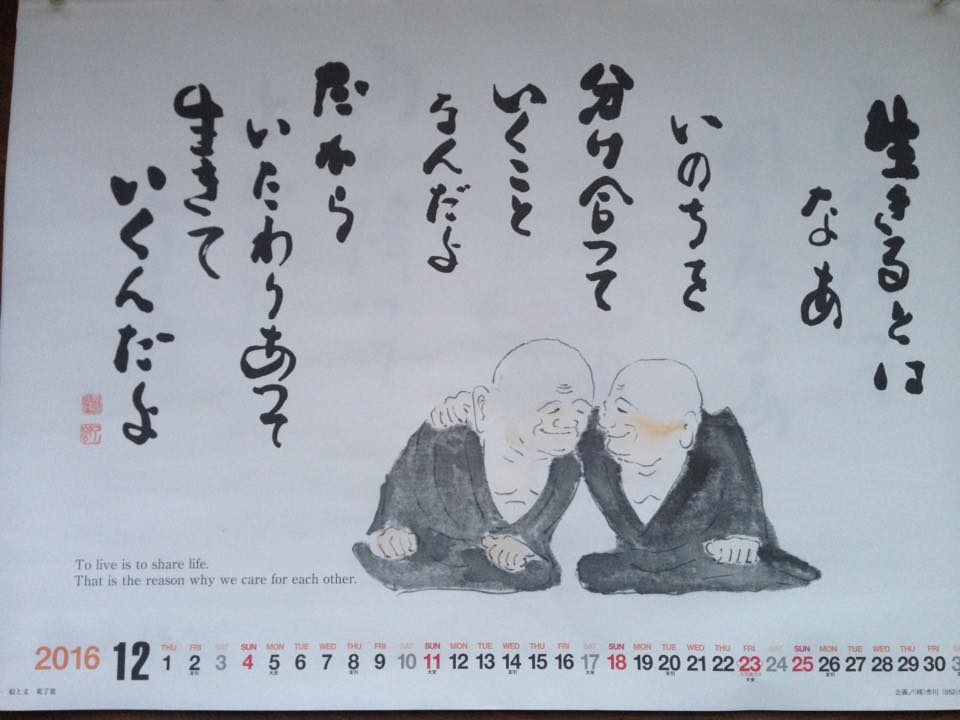 生きるとは
なあ
いのちを
分け合って
いくこと
なんだよ
だから
いたわりあって
生きて
いくんだよ
To live is to share life.
That is the reason why we care for each other.
2016 12
THU FRI SAT SUN MON TUE WED THU FRI SAT SUN MON TUE WED THU FRI SAT SUN MON TUE WED THU FRI SAT SUN MON TUE WED THU FRI
1 2 3 4 5 6 7 8 9 10 11 12 13 14 15 16 17 18 19 20 21 22 23 24 25 26 27 28 29 30
絵と文
企画／(株)市川